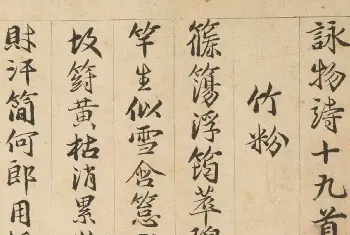 詠物詩十九首
竹粉
篠簜浮筠萃碧
竿生似雪含籜
故箬黃枯消累
財汗簡何郎用